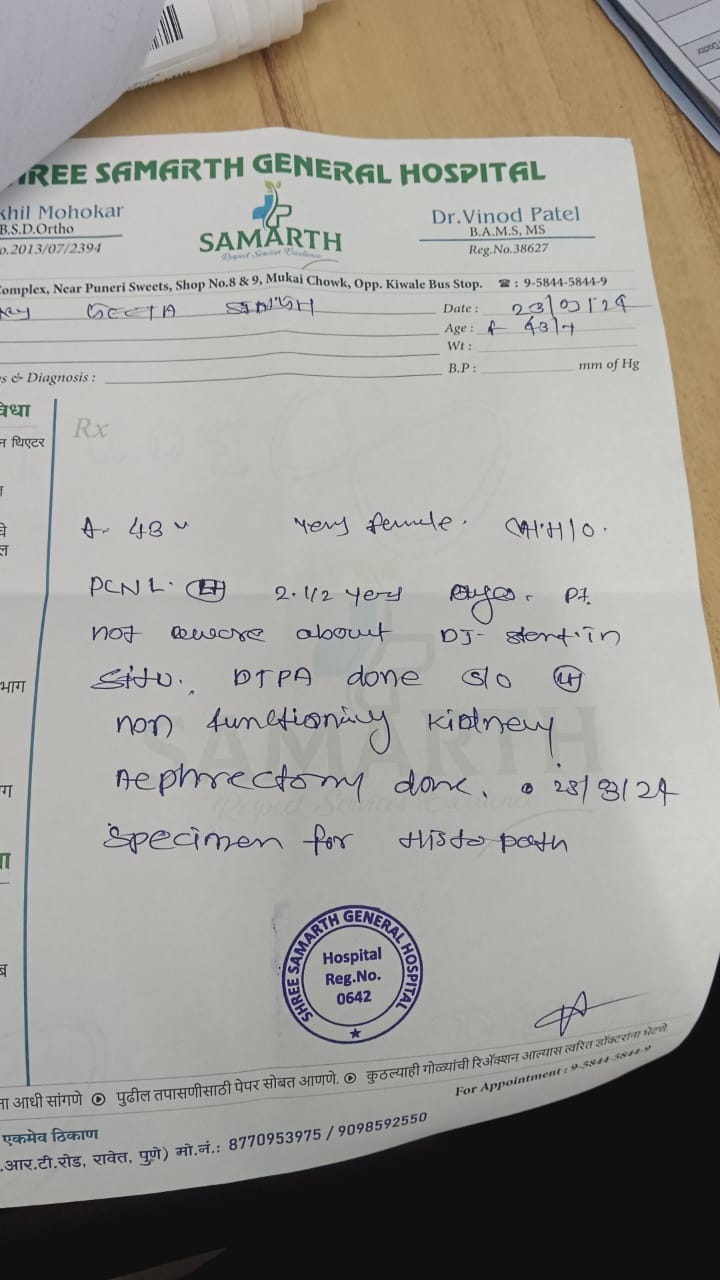 HREE SAMARTH GENERAL HOSPITAL
khil Mohokar
B.S.D.Ortho
o.2013/07/2394
SAMARTH
Respect Services Excellence
Dr.Vinod Patel
B.A.M.S, MS
Reg.No.38627
Complex, Near Puneri Sweets, Shop No.8 & 9, Mukai Chowk, Opp. Kiwale Bus Stop. ☎ : 9-5844-5844-9
GEETA SINGH
Date : 23/03/24
Age : 43/
Wt :
B.P : mm of Hg
s & Diagnosis :
विधा
न थिएटर
भाग
Rx
A- 43 yers female. H/O.
PCNL. LH 2-1/2 yers ago. Pt.
not aware about DJ-stent in
situ. DTPA done S/O LH
non functioning kidney
Nephrectomy done. 23/03/24
specimen for Histopath
SHREE SAMARTH GENERAL HOSPITAL
Hospital
Reg.No.
0642
ना आधी सांगणे पुढील तपासणीसाठी पेपर सोबत आणणे. कुठल्याही गोळ्यांची रिॲक्शन आल्यास त्वरित डॉक्टरांना भेटणे.
For Appointment : 9-5844-5844-9
एकमेव ठिकाण
.आर.टी.रोड, रावेत, पुणे) मो.नं.: 8770953975 / 9098592550